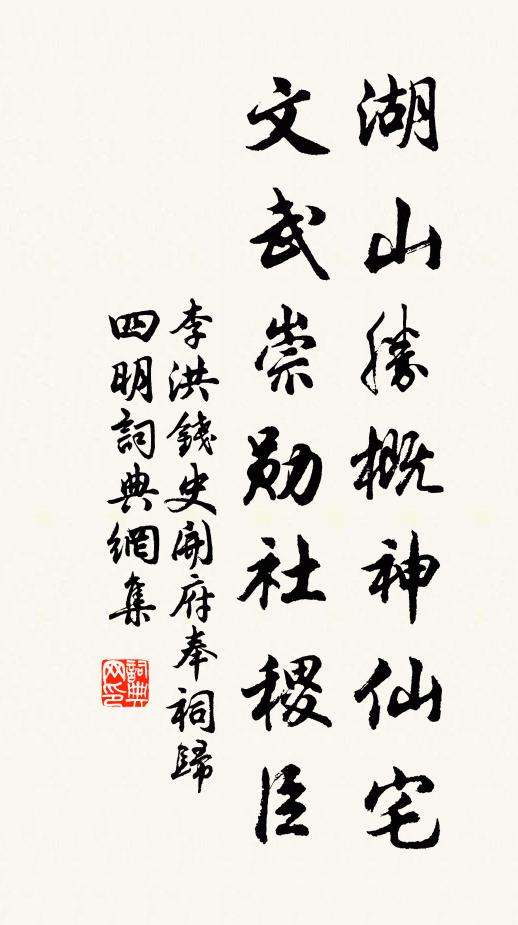 湖山勝概神仙宅
文武崇勋社稷臣
李洪錢史開府奉祠歸
四明詞典網集
詞典
网印